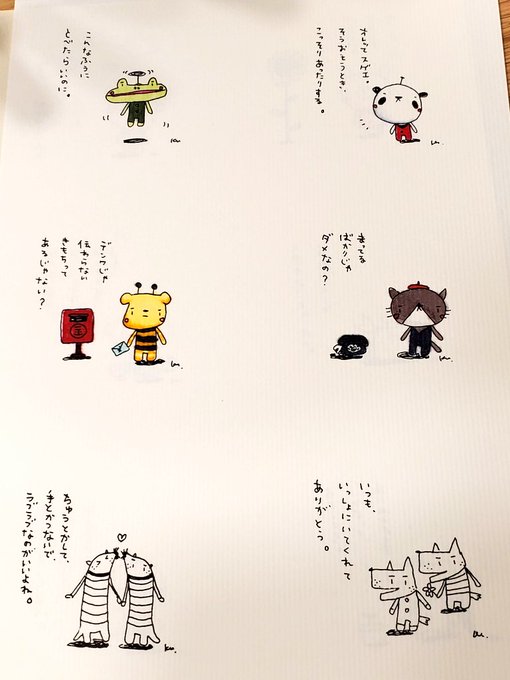 オレってスゲエ。
そうおもうとき、
こっそりあたりする。
こんなふうに
とべたらいいのに。
まってる
ばかりじゃ
ダメなの？
デンワじゃ
伝わらない
きもちって
あるじゃない？
いつも、
いっしょにいてくれて
ありがとう。
ちゅうとかして、
手とかつないで、
ラブラブなのがいいよね。